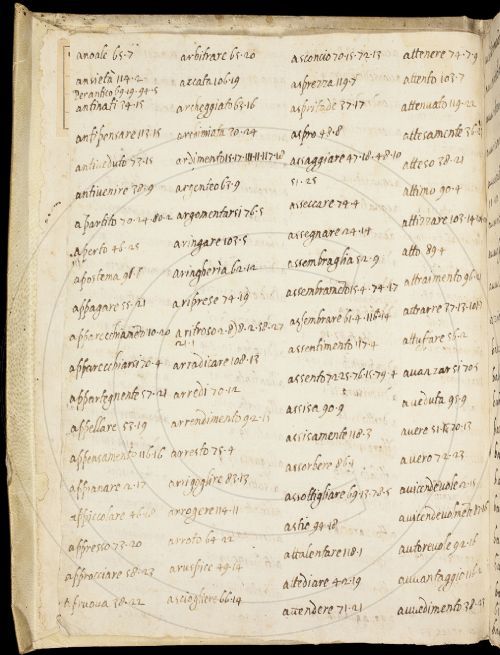 anoale 65.7
ansietà 114.2
Per antico 69.19.94.5
antinati 34.15
antipensare 13.15
antiveduto 73.15
antivenire 38.9
a partito 70.24.80.2
aperto 46.25
apostema
appagare 55.21
apparecchiamento 10.20
apparecchiarsi 70.4
appartegnente 57.21
appellare 53.19
appensamento 116.16
appianare 2.17
appiccolare
appresso 73.20
approcciare 58.23
apruova 38.22
arbitrare 65.20
arcata 106.19
archeggiato 63.16
archimiata 30.24
ardimento
argenteo 63.9
argomentarsi 76.5
aringare 103.5
aringheria 62.12
ariprese 74.19
aritroso 2.8)8.2.38.27
21.1
arradicare 108.13
arredi 70.12
arrendimento 92.13
arresto 75.4
arrigoglire 83.13
arrogere 114.11
arroto 64.22
aruspice 49.14
asciogliere 66.14
asconcio 70.15.72.13
asprezza 119.7
aspritade 37.17
aspro 48.8
assaggiare 47.18.48.10
51.25
asseccare 74.4
assegnare 24.14
assembraglia 52.9
assembramento 15.4.74.17
assembrare 61.4.116.14
assentimento 117.4
assento 72.25.76.15.79.4
assisa 90.9
assisamente 118.3
assorbere 86.4
assottigliare 69.13.78.5
astio 94.18
attalentare 118.1
attediare 42.19
attendere 71.21
attenere 74.7.9
attento 103.7
attenuato 119.22
attesamente
atteso 38.21
attimo 90.4
attizzare
atto 89.4
attraimento 96.21
attrarre
attufare 56.2
avanzarsi 70.5
aveduta 95.9
avere
avero 72.23
avicendevole 2.15
avicendevolmente
autorevole 92.16
avvantaggio
avvedimento 38.23